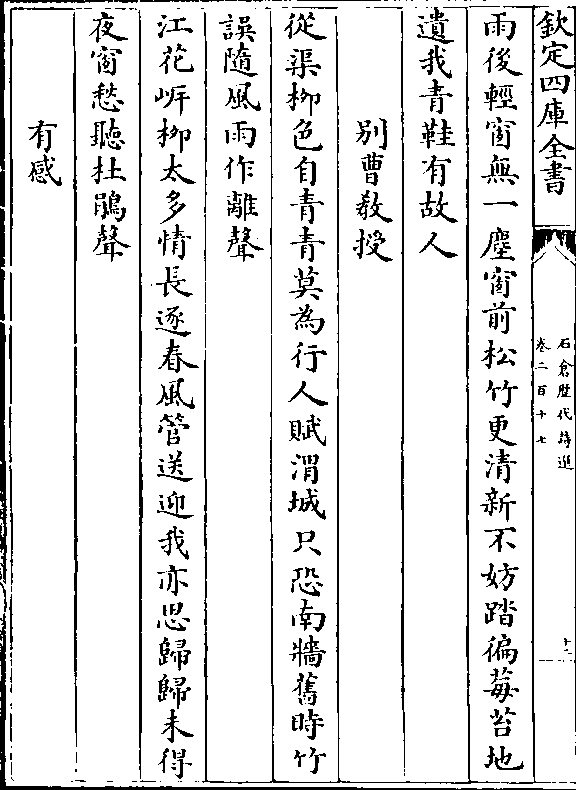 欽定四庫全書
石倉歴代詩選
卷二百十七
十一
雨後輕窗無一塵窗前松竹更清新不妨踏徧莓苔地
遺我青鞋有故人
別曹教授
從渠柳色自青青莫為行人賦渭城只恐南牆舊時竹
誤隨風雨作離聲
江花岍柳太多情長逐春風管送迎我亦思歸歸未得
夜窗愁聽杜鵑聲
有感